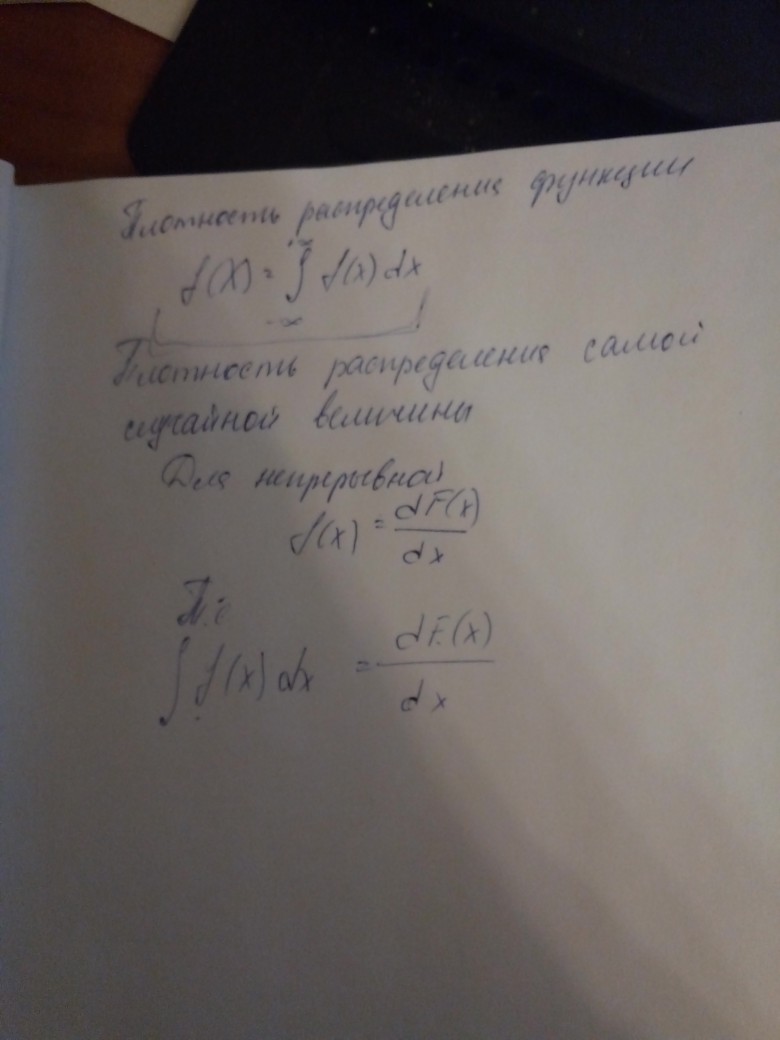 Плотность распределения функции
f(X) = ∫_{-∞}^{+∞} f(x) dx
Плотность распределения самой
случайной величины
Для непрерывной
f(x) = dF(x)/dx
Т.е
∫ f(x) dx = dF(x)/dx